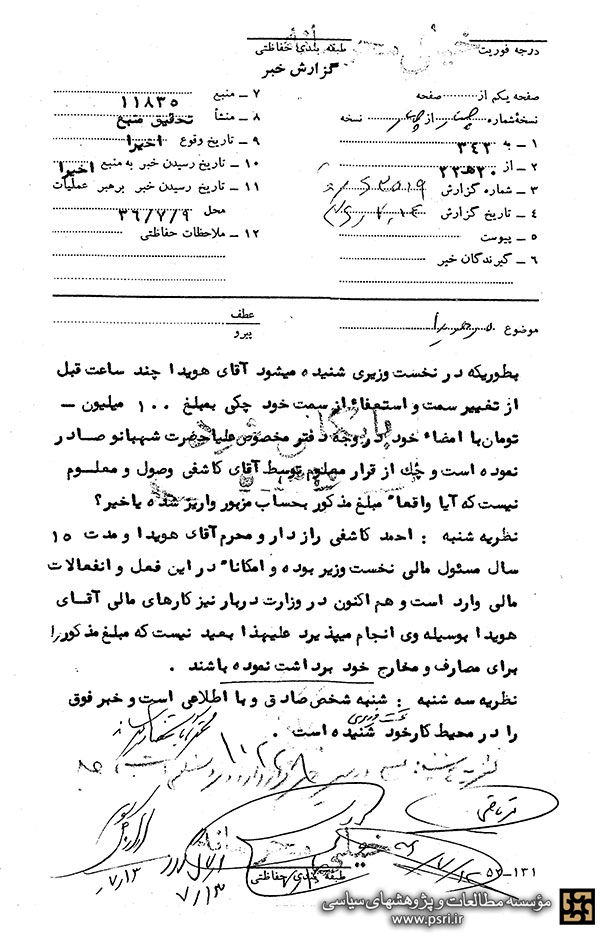 خیلی محرمانه
درجه فوریت
طبقه بندی حفاظتی
گزارش خبر
صفحه یکم از صفحه
نسخهٔ شماره چهار از چهار نسخه
۱ ـ به ۳۴۲
۲ ـ از ۲۰هـ۲۲
۳ ـ شماره گزارش
۴ ـ تاریخ گزارش
۵ ـ پیوست
۶ ـ گیرندگان خبر
۷ ـ منبع ۱۱۸۳۵
۸ ـ منشأ تحقیق منبع
۹ ـ تاریخ وقوع اخیرا
۱۰ ـ تاریخ رسیدن خبر به منبع اخیرا
۱۱ ـ تاریخ رسیدن خبر برهبر عملیات
محل ۳۶/۷/۹
۱۲ ـ ملاحظات حفاظتی
موضوع
عطف
پیرو
بطوریکه در نخست وزیری شنیده میشود آقای هویدا چند ساعت قبل
از تغییر سمت و استعفاء از سمت خود چکی بمبلغ ۱۰۰ میلیون ـ
تومان با امضاء خود در وجه دفتر مخصوص علیاحضرت شهبانو صادر
نموده است و چك از قرار معلوم توسط آقای کاشفی وصول و معلوم
نیست که آیا واقعاً مبلغ مذکور بحساب مزبور واریز شده یا خیر؟
نظریه شنبه : احمد کاشفی راز دار و محرم آقای هویدا و مدت ۱۵
سال مسئول مالی نخست وزیر بوده و امکاناً در این فعل و انفعالات
مالی وارد است و هم اکنون در وزارت دربار نیز کارهای مالی آقای
هویدا بوسیله وی انجام میپذیرد علیهذا بعید نیست که مبلغ مذکور را
برای مصارف و مخارج خود برداشت نموده باشند .
نظریه سه شنبه : شنبه شخص صادق و با اطلاعی است و خبر فوق
را در محیط کار خود شنیده است .
خیلی محرمانه
طبقه بندی حفاظتی
۷/۱۳
۷/۱۳
۵۲-۱۳۱
مؤسسه مطالعات و پژوهشهای سیاسی
www.psri.ir